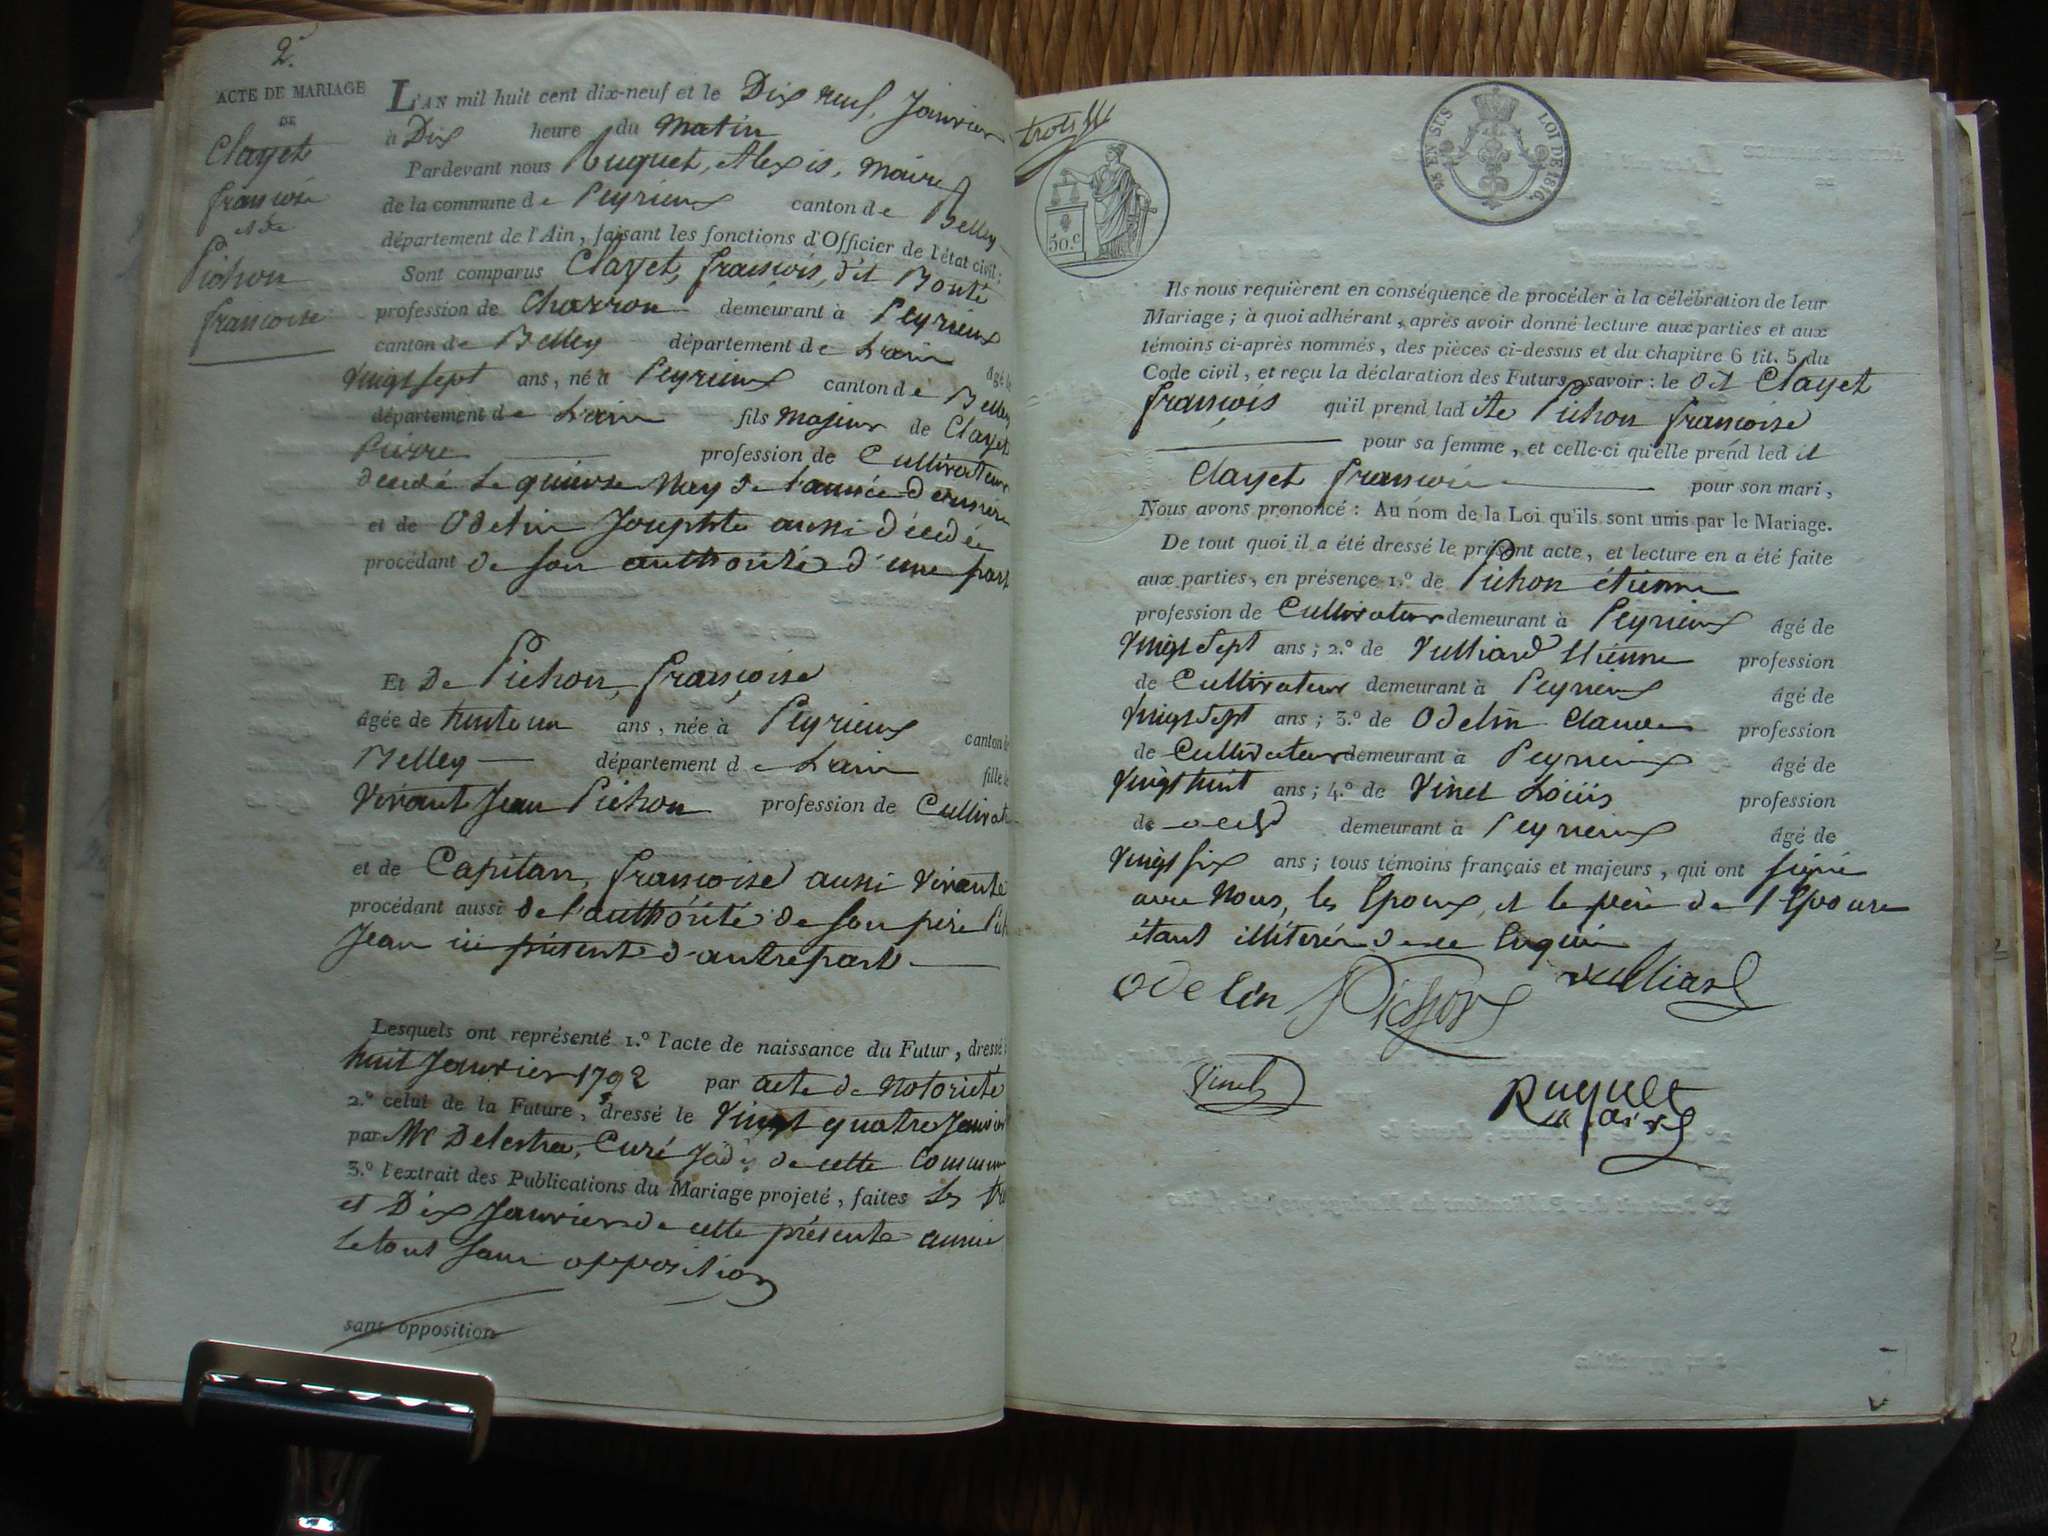 2.
ACTE DE MARIAGE
DE
Clayet
françois
et de
Pichon
françoise
L'AN mil huit cent dix-neuf et le Dix neuf Janvier
à Dix heure du Matin
Pardevant nous Ruquet, Alexis, Maire
de la commune de Peyrieux canton de Belley
département de l'Ain, faisant les fonctions d'Officier de l'état civil;
Sont comparus Clayet, françois, dit Bonté
profession de Charron demeurant à Peyrieux
canton de Belley département de Lain âgé de
Vingt sept ans, né à Peyrieux canton de Belley
département de Lain fils Majeur de Clayet
Pierre profession de Cultivateur
décédé le quinse May de l'année dernière
et de Odelin Josephte aussi décédée
procédant de son authorité d'une part
Et De Pichon, françoise
âgée de trente un ans, née à Peyrieux canton de
Belley département de Lain fille de
Vivant Jean Pichon profession de Cultivat
et de Capitan, françoise aussi Vivante
procédant aussi de l'authorité de son père
Jean ici présent d'autre part
Lesquels ont représenté 1.º l'acte de naissance du Futur, dressé
huit Janvier 1792 par acte de Notoriété
2.º celui de la Future, dressé le Vingt quatre Janvier
par Mr Delestra, Curé Jadis de cette Commune
3.º l'extrait des Publications du Mariage projeté, faites les
et Dix Janvier de cette présente année
le tout sans opposition
sans opposition
trois
50.c
28 EN SUS LOI DE 1816.
Ils nous requièrent en conséquence de procéder à la célébration de leur
Mariage; à quoi adhérant, après avoir donné lecture aux parties et aux
témoins ci-après nommés, des pièces ci-dessus et du chapitre 6 tit. 5 du
Code civil, et reçu la déclaration des Futurs, savoir: le dit Clayet
françois qu'il prend ladite Pichon françoise
pour sa femme, et celle-ci qu'elle prend ledit
Clayet françois pour son mari,
Nous avons prononcé: Au nom de la Loi qu'ils sont unis par le Mariage.
De tout quoi il a été dressé le présent acte, et lecture en a été faite
aux parties, en présence 1.º de Pichon étienne
profession de Cultivateur demeurant à Peyrieux âgé de
Vingt Sept ans; 2.º de Vulliard Etienne profession
de Cultivateur demeurant à Peyrieux âgé de
Vingt Sept ans; 3.º de Odelin Claude profession
de Cultivateur demeurant à Peyrieux âgé de
Vingt huit ans; 4.º de Vinet Loüis profession
de demeurant à Peyrieux âgé de
Vingt six ans; tous témoins français et majeurs, qui ont signé
avec Nous, les Epoux, et le père de l'Epouse
étant illiterés de ce Enquis
Odelin Pichon Vulliard
Vinet Ruquet
Maire